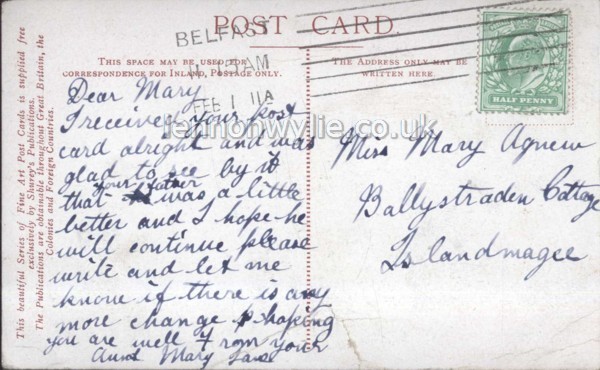 POST CARD.
BELFAST
AM
FEB 1 11
THIS SPACE MAY BE USED FOR
CORRESPONDENCE FOR INLAND, POSTAGE ONLY.
THE ADDRESS ONLY MAY BE
WRITTEN HERE.
HALF PENNY
This beautiful Series of Fine Art Post Cards is supplied free
exclusively by Shurey's Publications.
The Publications are obtainable throughout Great Britain, the
Colonies and Foreign Countries.
Dear Mary
I received your post
card alright and was
glad to see by it
your father
that was a little
better and I hope he
will continue please
write and let me
know if there is any
more change hoping
you are well from your
Aunt Mary Jane
Miss Mary Agnew
Ballystraden Cottage
Islandmagee
lennonwylie.co.uk